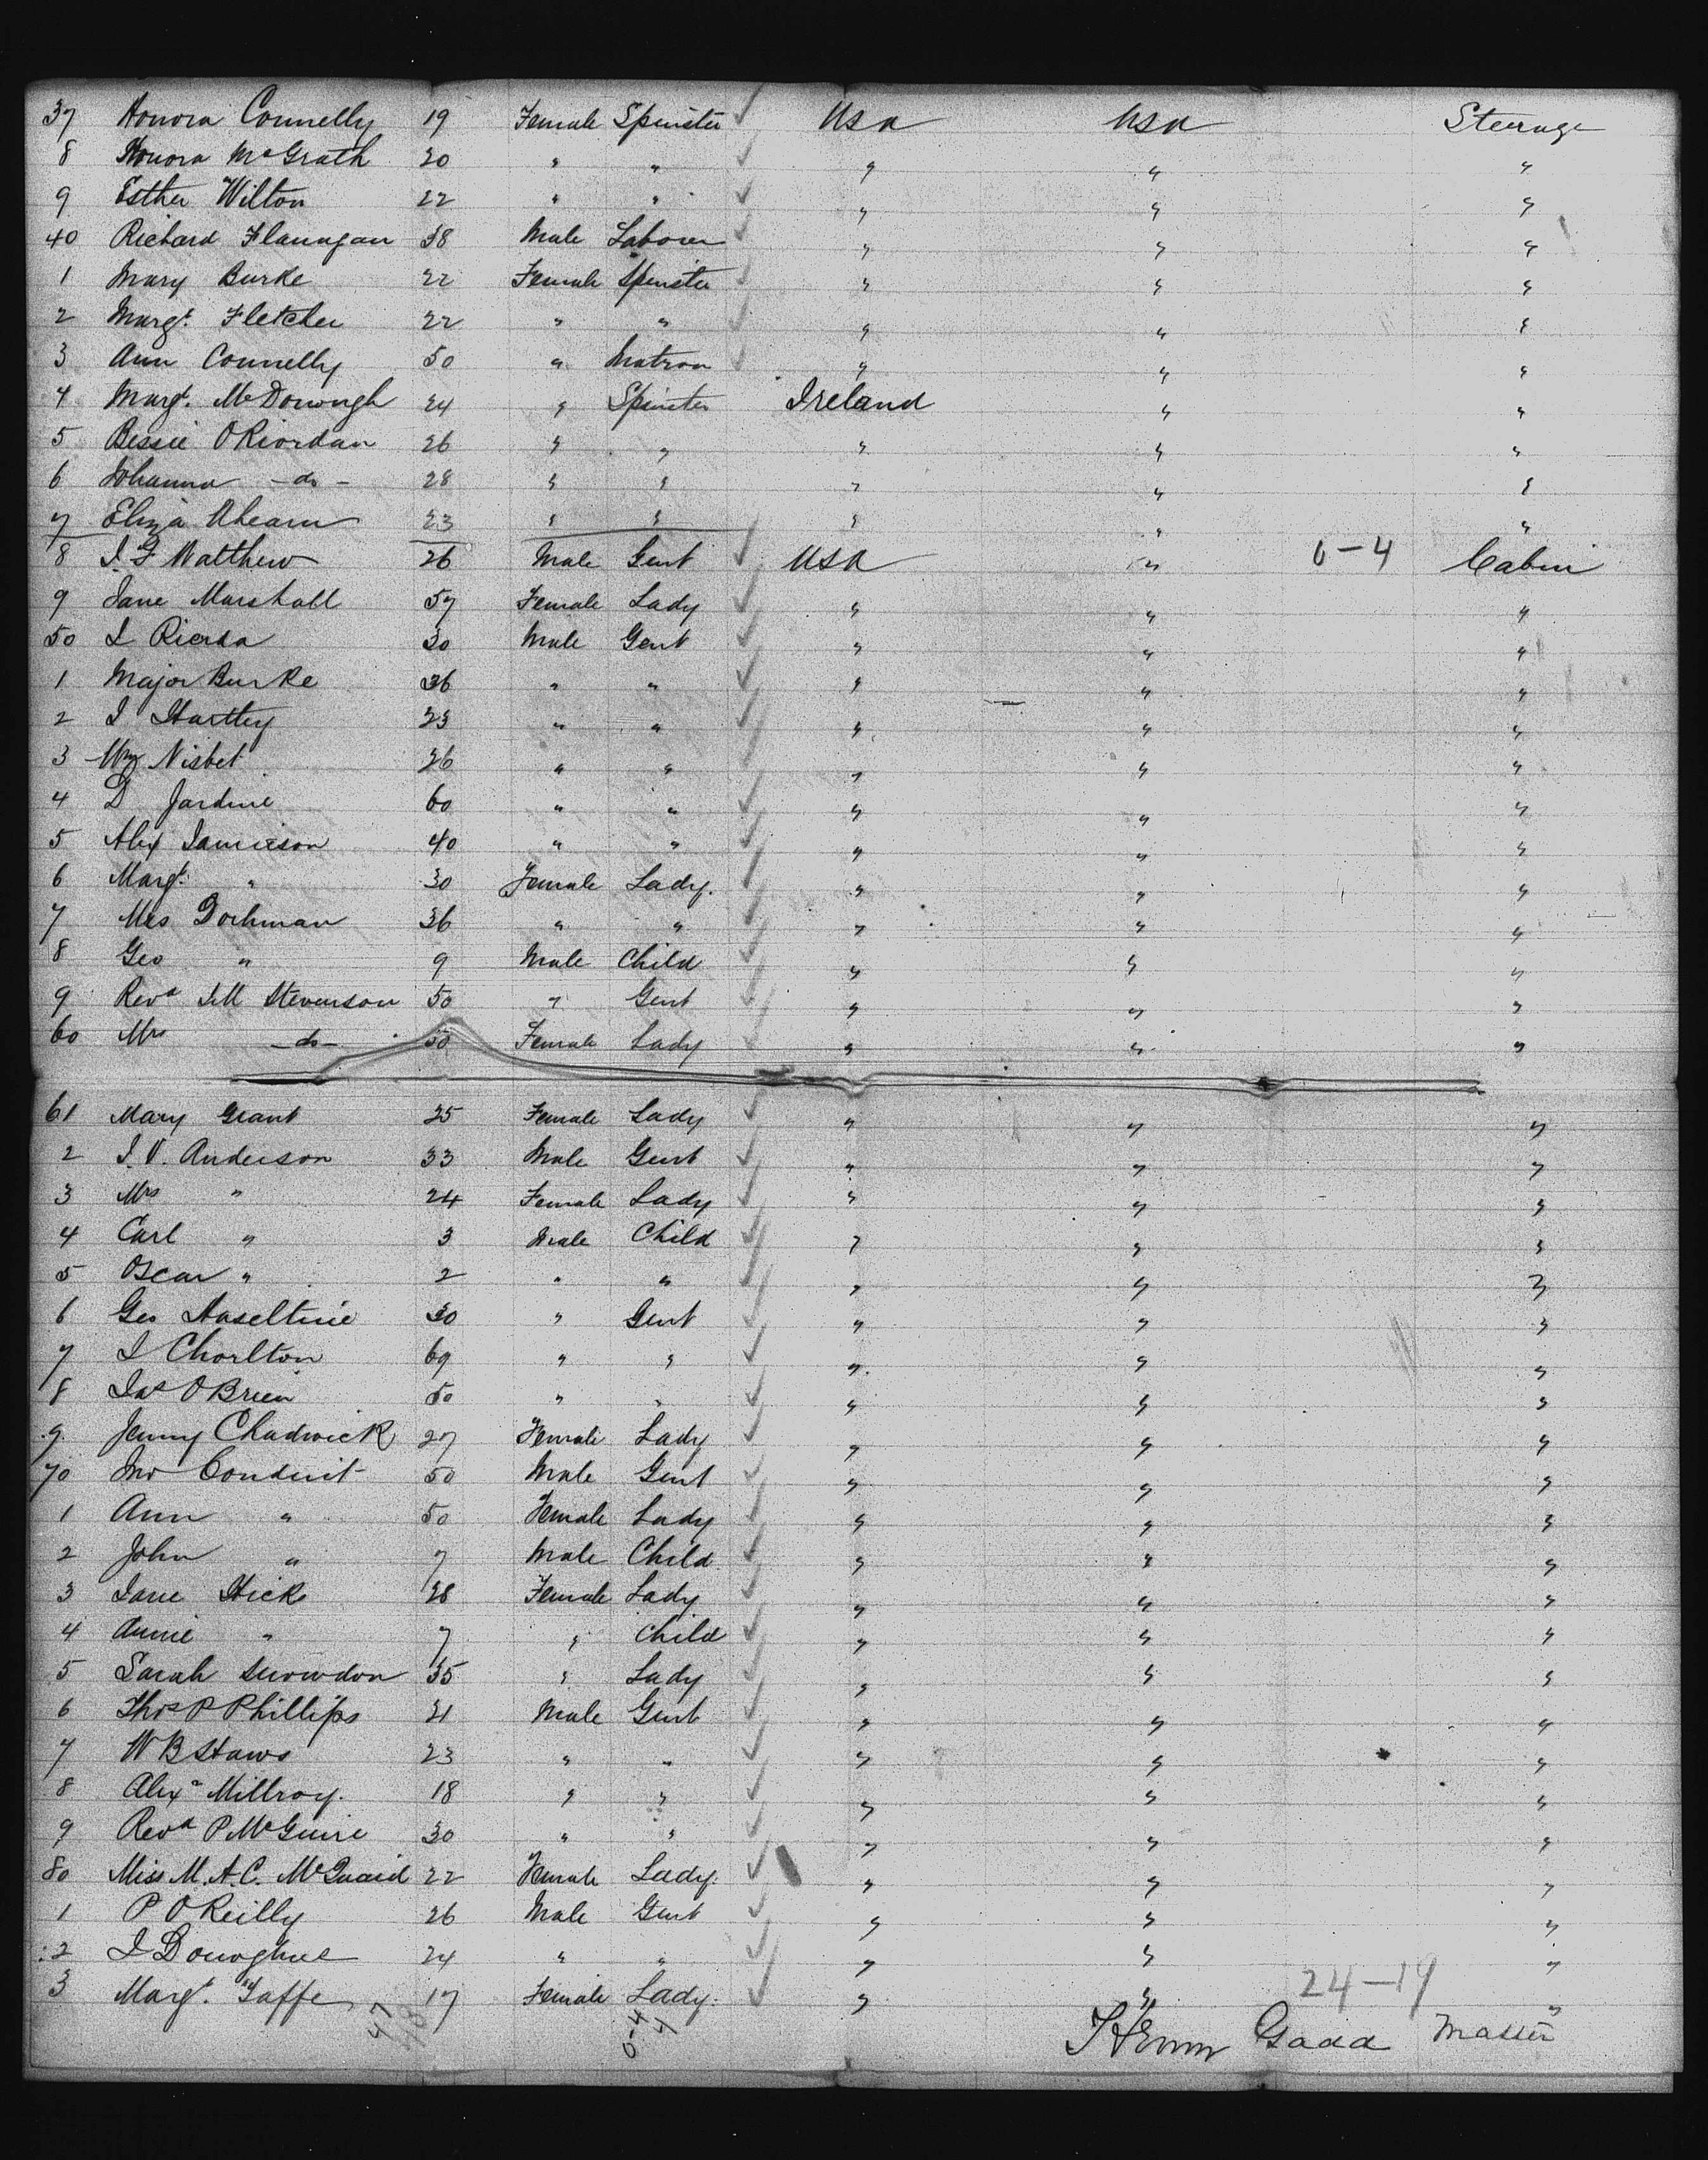 37 Honora Connelly 19 Female Spinster USA USA Steerage
8 Honora McGrath 20 " " " " "
9 Esther Wilton 22 " " " " "
40 Richard Flanagan 38 Male Laborer " " "
1 Mary Burke 22 Female Spinster " " "
2 Margt. Fletcher 22 " " " " "
3 Ann Connelly 50 " Matron " " "
4 Margt. McDonough 24 " Spinster Ireland " "
5 Bessie O'Riordan 26 " " " " "
6 Johanna -do- 28 " " " " "
7 Eliza Ahearn 23 " " " " "
8 J. F Matthew 26 Male Gent USA " 0-4 Cabin
9 Jane Marshall 57 Female Lady " " "
50 30 Male Gent " " "
1 Major Burke 36 " " " " "
2 J Hartley 23 " " " " "
3 Wm Nisbet 26 " " " " "
4 D Jardine 60 " " " " "
5 Alex Jamieson 40 " " " " "
6 Margt. " 30 Female Lady. " " "
7 Mrs Dorhman 36 " " " " "
8 Geo " 9 Male Child " " "
9 Revd J.M Stevenson 50 " Gent " " "
60 Mrs -do- 50 Female Lady " " "
61 Mary Grant 25 Female Lady " " "
2 J. V. Anderson 33 Male Gent " " "
3 Mrs " 24 Female Lady " " "
4 Carl " 3 Male Child " " "
5 Oscar " 2 " " " " "
6 Geo Haseltine 30 " Gent " " "
7 J Chorlton 69 " " " " "
8 Jas O'Brien 50 " " " " "
9 Jenny Chadwick 27 Female Lady " " "
70 Jno Conduit 50 Male Gent " " "
1 Ann " 50 Female Lady " " "
2 John " 7 Male Child " " "
3 Jane Hicks 28 Female Lady " " "
4 Annie " 7 " Child " " "
5 Sarah Snowdon 35 " Lady " " "
6 Thos P Phillips 21 Male Gent " " "
7 W B Haws 23 " " " " "
8 Alexr Millroy. 18 " " " " "
9 Revd P. McGuire 30 " " " " "
80 Miss M. A. C. McQuaid 22 Female Lady. " " "
1 P O'Reilly 26 Male Gent " " "
2 J Donoghue 24 " " " " "
3 Margt. Gaffe 17 Female Lady. " " "
24-19
47 0-4 4
Henry Gadd Master